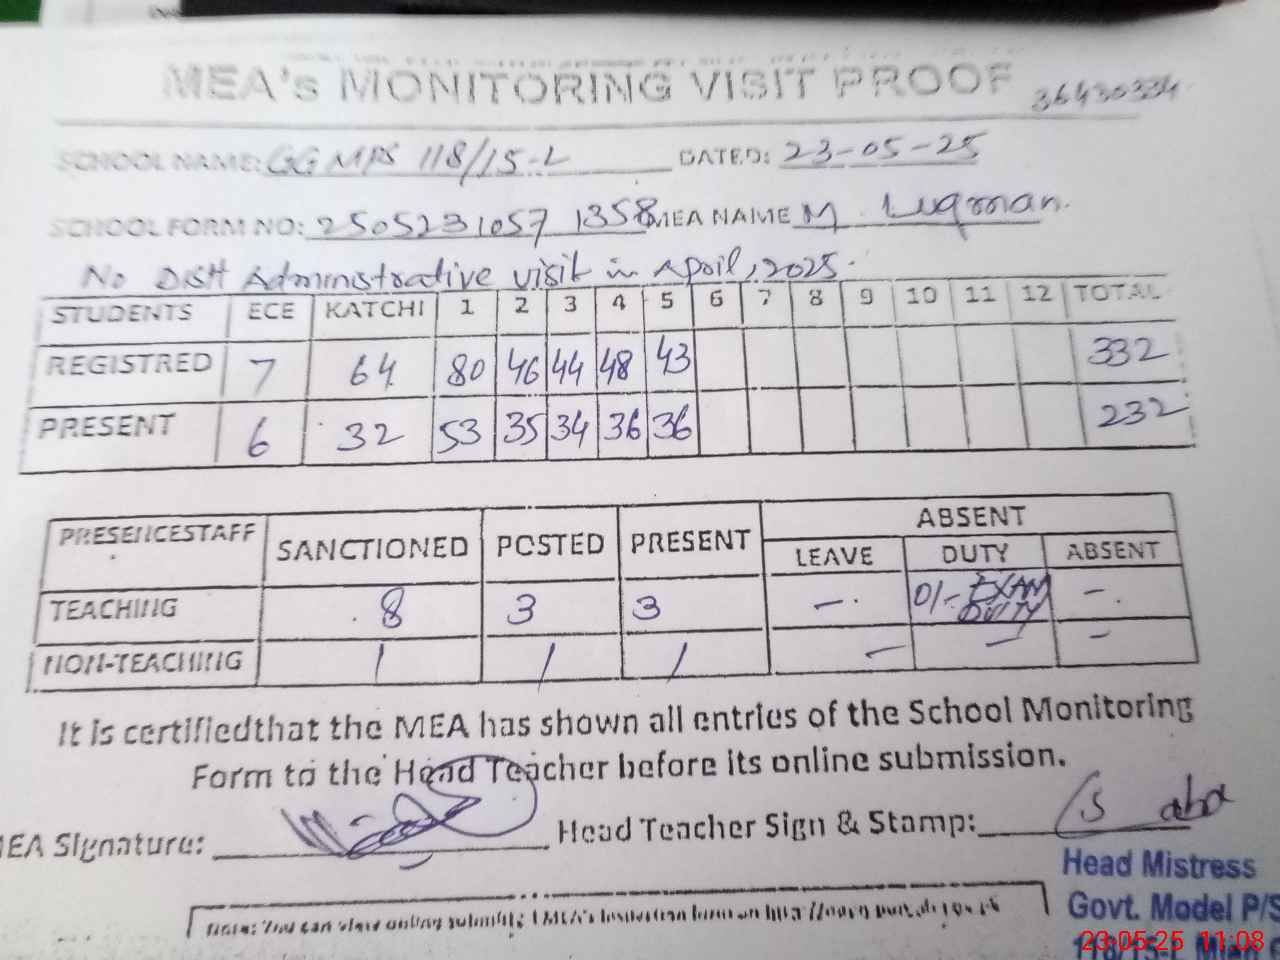 MEA's MONITORING VISIT PROOF 36430334
SCHOOL NAME: GGMPS 118/15-L DATED: 23-05-25
SCHOOL FORM NO: 2505231057 1358 MEA NAME M. Luqman.
No Distt Administrative visit in April, 2025.
STUDENTS ECE KATCHI 1 2 3 4 5 6 7 8 9 10 11 12 TOTAL
REGISTRED 7 64 80 46 44 48 43 332
PRESENT 6 32 53 35 34 36 36 232
PRESENCESTAFF SANCTIONED POSTED PRESENT ABSENT
LEAVE DUTY ABSENT
TEACHING 8 3 3 - 01- EXAM DUTY -
NON-TEACHING 1 1 1 - - -
It is certifiedthat the MEA has shown all entries of the School Monitoring
Form to the Head Teacher before its online submission.
MEA Signature: Head Teacher Sign & Stamp: Saba
Head Mistress
Govt. Model P/S
118/15-L Mian
23-05-25 11:08
Note: You can view online